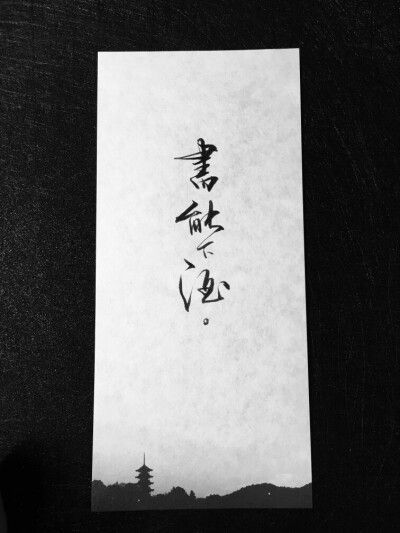 書能下酒。